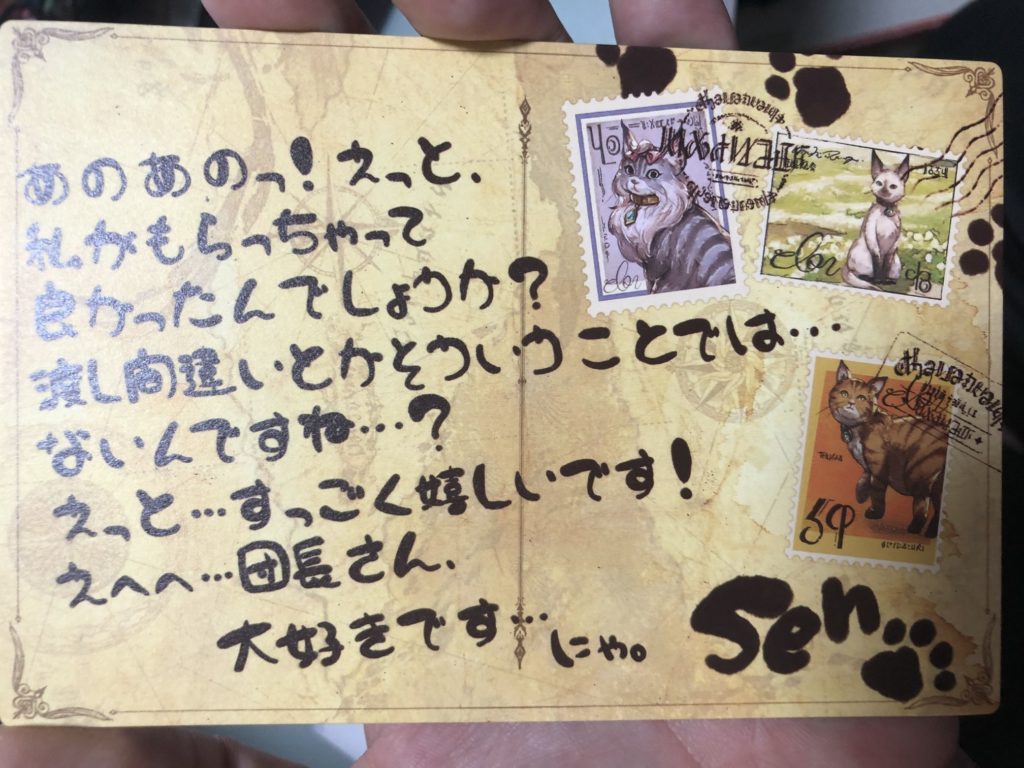 あのあのっ!えっと、
私がもらっちゃって
良かったんでしょうか?
渡し間違いとかそういうことでは…
ないんですね…?
えっと…すっごく嬉しいです!
えへへ…団長さん、
大好きです…にゃ。
Sen